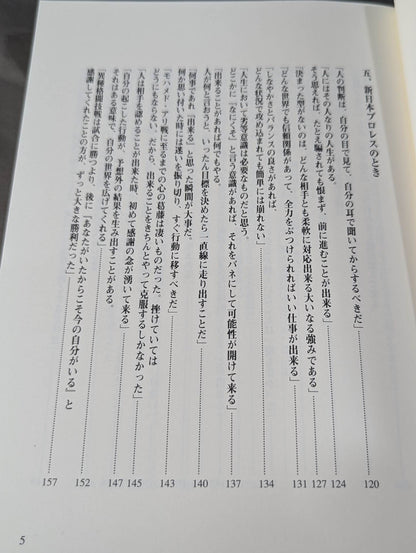 五、新日本プロレスのとき
「人の判断は、自分の目で見て、自分の耳で聞いてからするべきだ」……120
「人にはその人なりの人生がある。
そう思えれば、たとえ騙されても恨まず、前に進むことが出来る」……124
「決まった型がないのは、どんな相手とも柔軟に対応出来る大いなる強みである」……127
「どんな世界でも信頼関係があって、全力をぶつけられればいい仕事が出来る」……131
「しなやかさとバランスの良さがあれば、
どんな状況で攻め込まれても簡単には崩れない」……134
「人生において劣等意識は必要なものだと思う。
どこかに『なにくそ』と言う意識があれば、それをバネにして可能性が開けて来る」……137
「出来ることがあれば何でもやる。
人が何と言おうと、いったん目標を決めたら一直線に走り出すことだ」……140
「何事であれ、『出来る』と思った瞬間が大事だ。
何か思い付いた時には迷いを振り切り、すぐ行動に移すべきだ」……143
「モハメド・アリ戦に至るまでの心の葛藤は凄いものだった。挫けていては
どうにもならない。だから、出来ることをきちんとやって克服するしかなかった」……145
「人は相手を認めることが出来た時、初めて感謝の念が湧いて来る」……147
「自分の起こした行動が、予想外の結果を生み出すことがある。
それはある意味で、自分の世界を広げてくれる」……152
「異種格闘技戦は試合に勝つより、後に『あなたがいたからこそ今の自分がいる』と
感謝してくれたことの方が、ずっと大きな勝利だった」……157
5